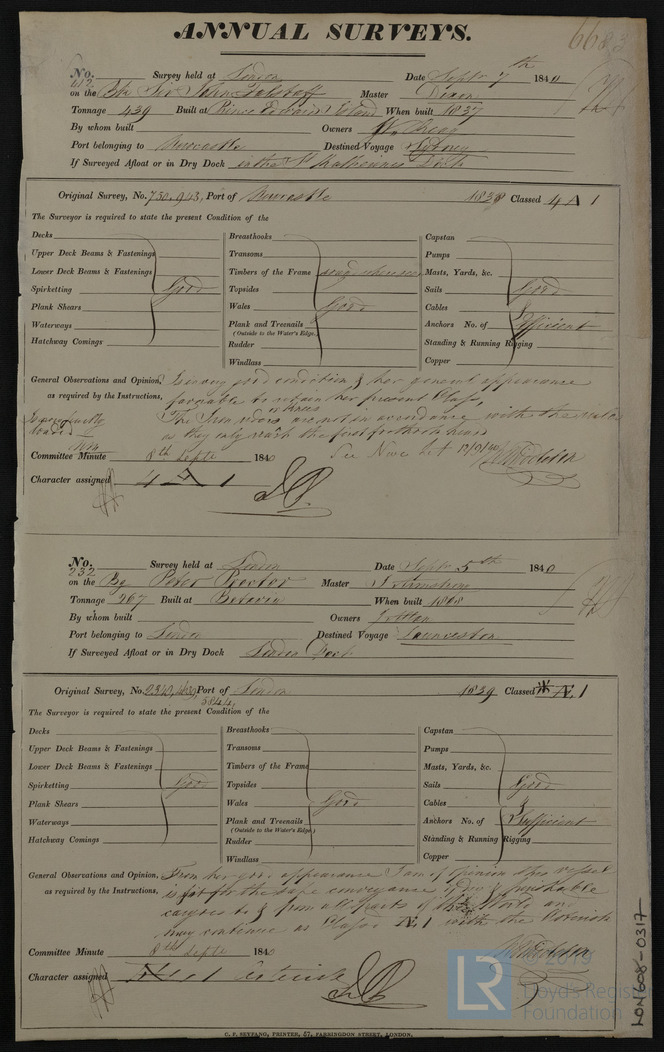 ANNUAL SURVEYS.
6683
No. 412 Survey held at London Date Septr 7th 1840
on the Bk Sir John Falstaff Master Dixon
Tonnage 439 Built at Prince Edwards Island When built 1837
By whom built Owners
Port belonging to Newcastle Destined Voyage Sydney
If Surveyed Afloat or in Dry Dock in the St Katherines Dock
Original Survey, No. 750.943, Port of Newcastle 1838 Classed 4 A 1
The Surveyor is required to state the present Condition of the
Decks
Upper Deck Beams & Fastenings
Lower Deck Beams & Fastenings
Spirketting Good
Plank Shears
Waterways
Hatchway Comings
Breasthooks
Transoms
Timbers of the Frame
Topsides
Wales Good
Plank and Treenails
(Outside to the Water's Edge.)
Rudder
Windlass
Capstan
Pumps
Masts, Yards, &c.
Sails Good
Cables
Anchors No. of 3 Sufficient
Standing & Running Rigging
Copper
General Observations and Opinion, Is in very good condition & her general appearance
as required by the Instructions, favorable to retain her present Class,
The Iron are not in accordance with the rules
as they only reach the
Committee Minute 8th Septr 1840
Character assigned 4 A 1
No. 232 Survey held at London Date Septr 5th 1840
on the Bg Peter Proctor Master
Tonnage 267 Built at Batavia When built 1808
By whom built Owners
Port belonging to London Destined Voyage Launceston
If Surveyed Afloat or in Dry Dock London Dock
Original Survey, No. Port of London 1839 Classed Æ 1
The Surveyor is required to state the present Condition of the
Decks
Upper Deck Beams & Fastenings
Lower Deck Beams & Fastenings
Spirketting Good
Plank Shears
Waterways
Hatchway Comings
Breasthooks
Transoms
Timbers of the Frame
Topsides
Wales Good
Plank and Treenails
(Outside to the Water's Edge.)
Rudder
Windlass
Capstan
Pumps
Masts, Yards, &c.
Sails Good
Cables
Anchors No. of 3 Sufficient
Standing & Running Rigging
Copper
General Observations and Opinion, From her good appearance I am of opinion this vessel
as required by the Instructions, is fit for the safe conveyance of dry & perishable
cargoes to & from all parts of the World and
may continue as Classed Æ 1 with the Asterisk
Committee Minute 8th Septr 1840
Character assigned Æ 1 Asterisk
C. F. SEYFANG, PRINTER, 57, FARRINGDON STREET, LONDON.
LON608-0317
LR
© 2019
Lloyd's Register
Foundation